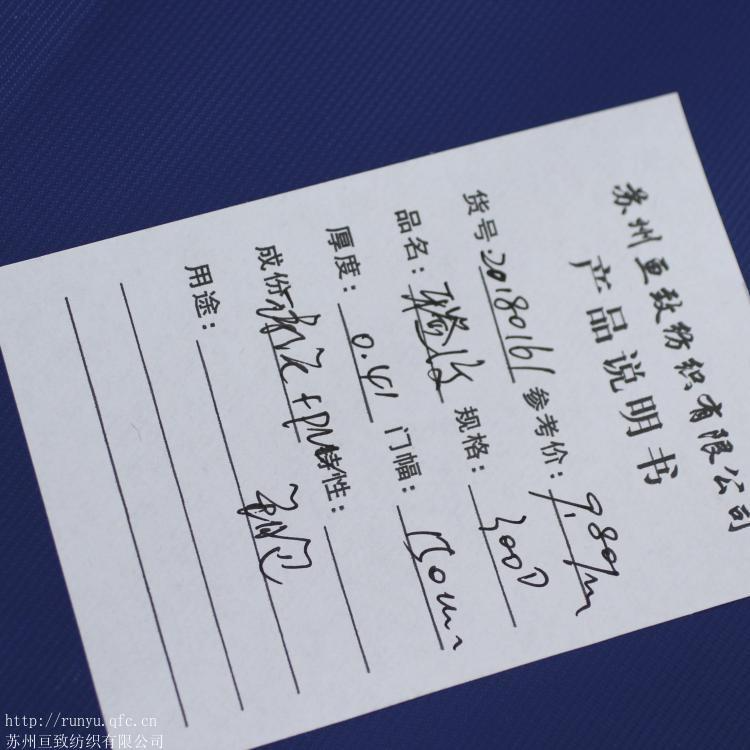 苏州亘致纺织有限公司
产品说明书
货号:20180161 参考价: 9.80/m
品名: 规格: 300D
厚度: 0.41 门幅: 150cm
成份 特性:
用途: 箱包
http://runyu.qfc.cn
苏州亘致纺织有限公司